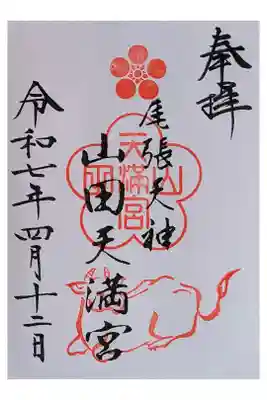 奉拝
尾張天神
山田天満宮
令和七年四月十二日
天満宮
山